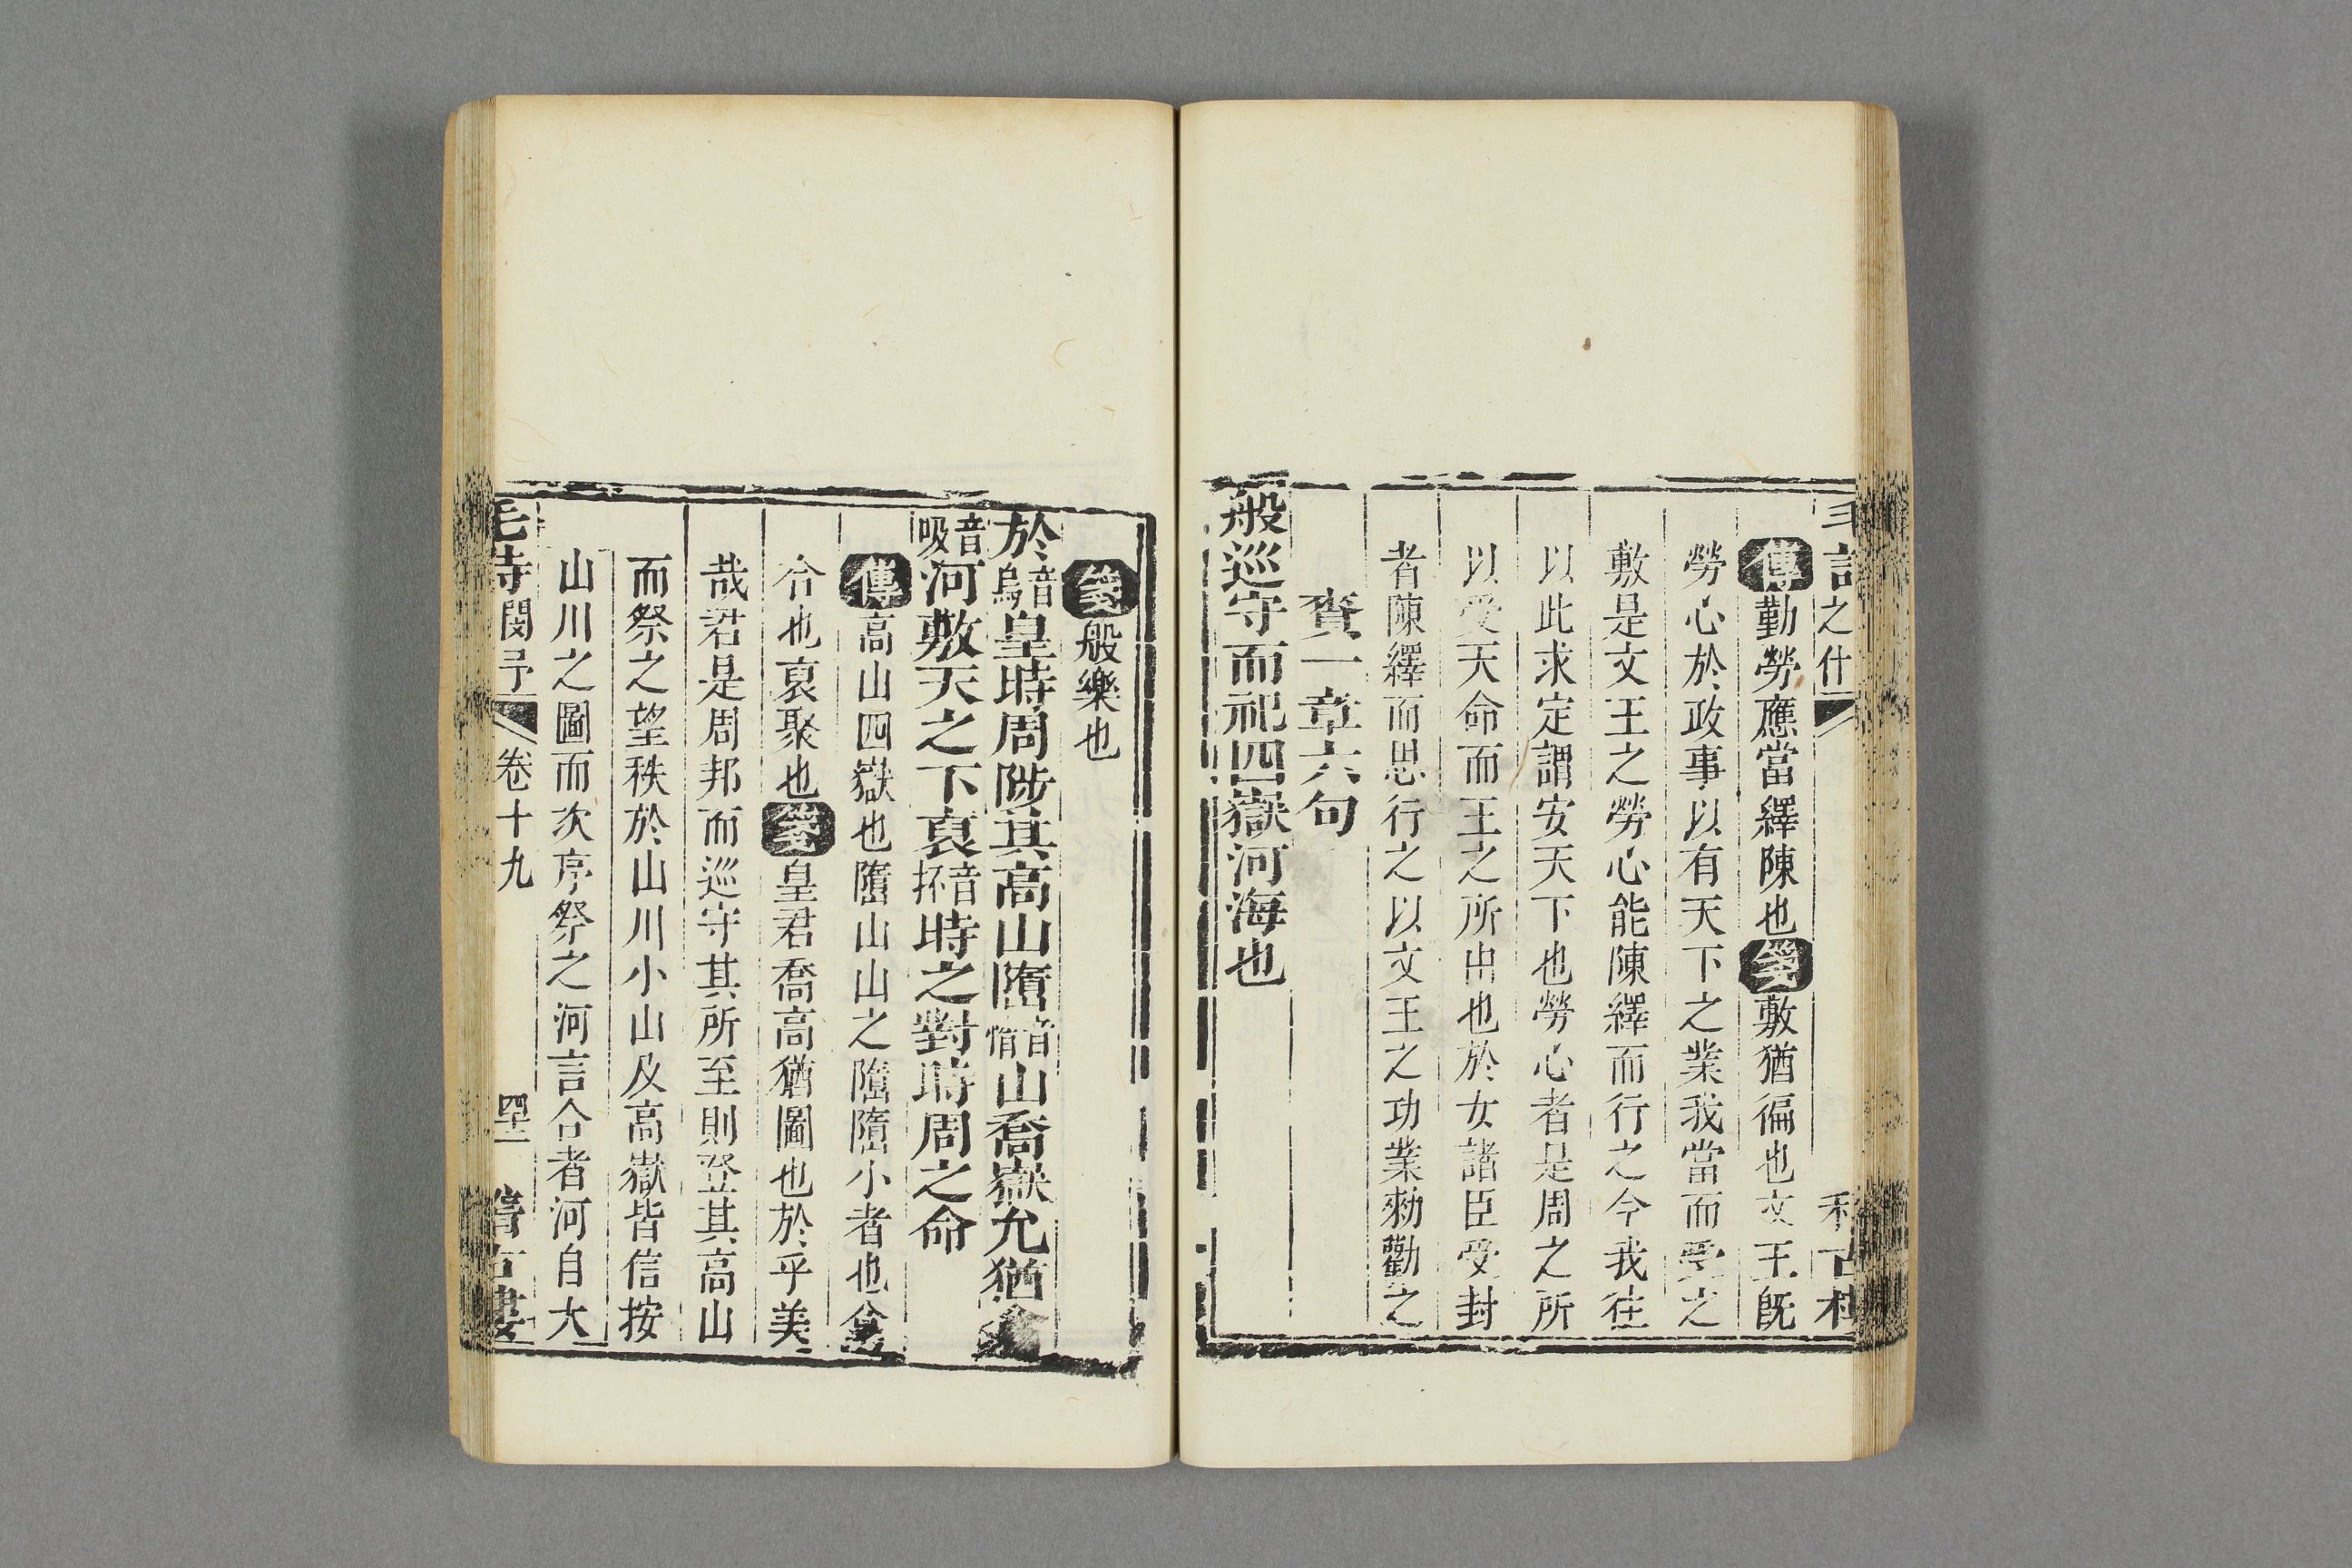 之什
傳勤勞應當繹陳也箋敷猶徧也文王既
勞心於政事以有天下之業我當而受之
敷是文王之勞心能陳繹而行之今我往
以此求定謂安天下也勞心者是周之所
以受天命而王之所由也於女諸臣受封
者陳繹而思行之以文王之功業勑勸之
賚一章六句
般巡守而祀四嶽河海也
箋般樂也
於音烏皇時周陟其高山嶞音惰山喬嶽允猶翕
音吸河敷天之下裒音抔時之對時周之命
傳高山四嶽也嶞山山之嶞嶞小者也翕
合也裒聚也箋皇君喬高猶圖也於乎美
哉君是周邦而巡守其所至則登其高山
而祭之望秩於山川小山及高嶽皆信按
山川之圖而次序祭之河言合者河自大
毛詩閔予 卷十九